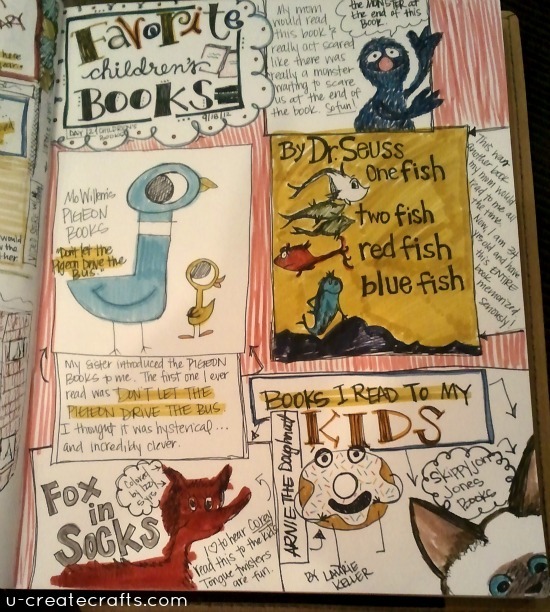 Favorite
children's
Books
Day 12 (CHILDREN'S
BOOKS)
My mom
would read
this book &
really act scared
like there was
really a monster
waiting to scare
us at the end of
the book. So fun!
the MONSTER at
the end of this
BOOK
Mo Willem's
PIGEON
BOOKS
"Don't let the
Pigeon Drive the
BUS."
By Dr. Seuss
One fish
two fish
red fish
blue fish
This was
another book
my mom would
read to me all
the time.
Now, I am 34
yrs. old and have
this ENTIRE
book
memorized.
Seriously!
My sister introduced the PIGEON
BOOKS to me. The first one I ever
read was "DON'T LET THE
PIGEON DRIVE THE BUS."
I thought it was hysterical...
and incredibly clever.
BOOKS I READ TO MY
KIDS
Fox
in
Socks
Colored
by Izzy
5 yrs
I ♡ to hear COREY
read this to the kids.
Tongue twisters
are fun.
ARNIE THE Doughnut
BY LAURIE
KELLER
Skippyjon
Jones
Books
u-createcrafts.com